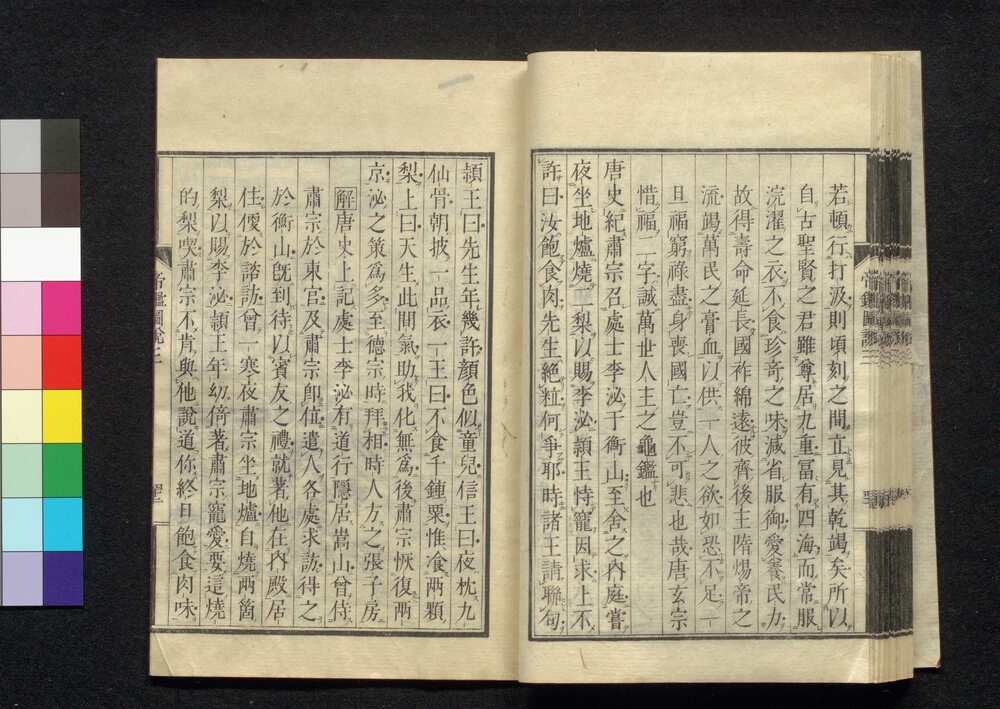 若頓行打汲則頃刻之間立見其乾竭矣所以
自古聖賢之君雖尊居九重冨有四海而常服
浣濯之衣不食珍奇之味減省服御愛養民力
故得壽命延長國祚綿遠彼齊後主隋煬帝之
流竭萬民之膏血以供一人之欲如恐不足一
旦福窮祿盡身喪國亡豈不可悲也哉唐玄宗
惜福二字誠萬世人主之龜鑑也
唐史紀肅宗召處士李泌于衡山至舍之內庭嘗
夜坐地爐燒二梨以賜李泌頴王恃寵因求上不
許曰汝飽食肉先生絶粒何爭耶時諸王請聯句
頴王曰先生年幾許顔色似童兒信王曰夜枕九
仙骨朝披一品衣一王曰不食千鍾粟惟飡兩顆
梨上曰天生此間氣助我化無爲後肅宗恢復兩
京泌之策爲多至德宗時拜相時人方之張子房
解唐史上記處士李泌有道行隱居嵩山曾侍
肅宗於東宮及肅宗卽位遣人各處求訪得之
於衡山旣到待以賓友之禮就著他在內殿居
住便於諮訪曾一寒夜肅宗坐地爐自燒兩箇
梨以賜李泌頴王年幼倚著肅宗寵愛要這燒
的梨喫肅宗不肯與他說道你終日飽食肉味
帝鑑圖說